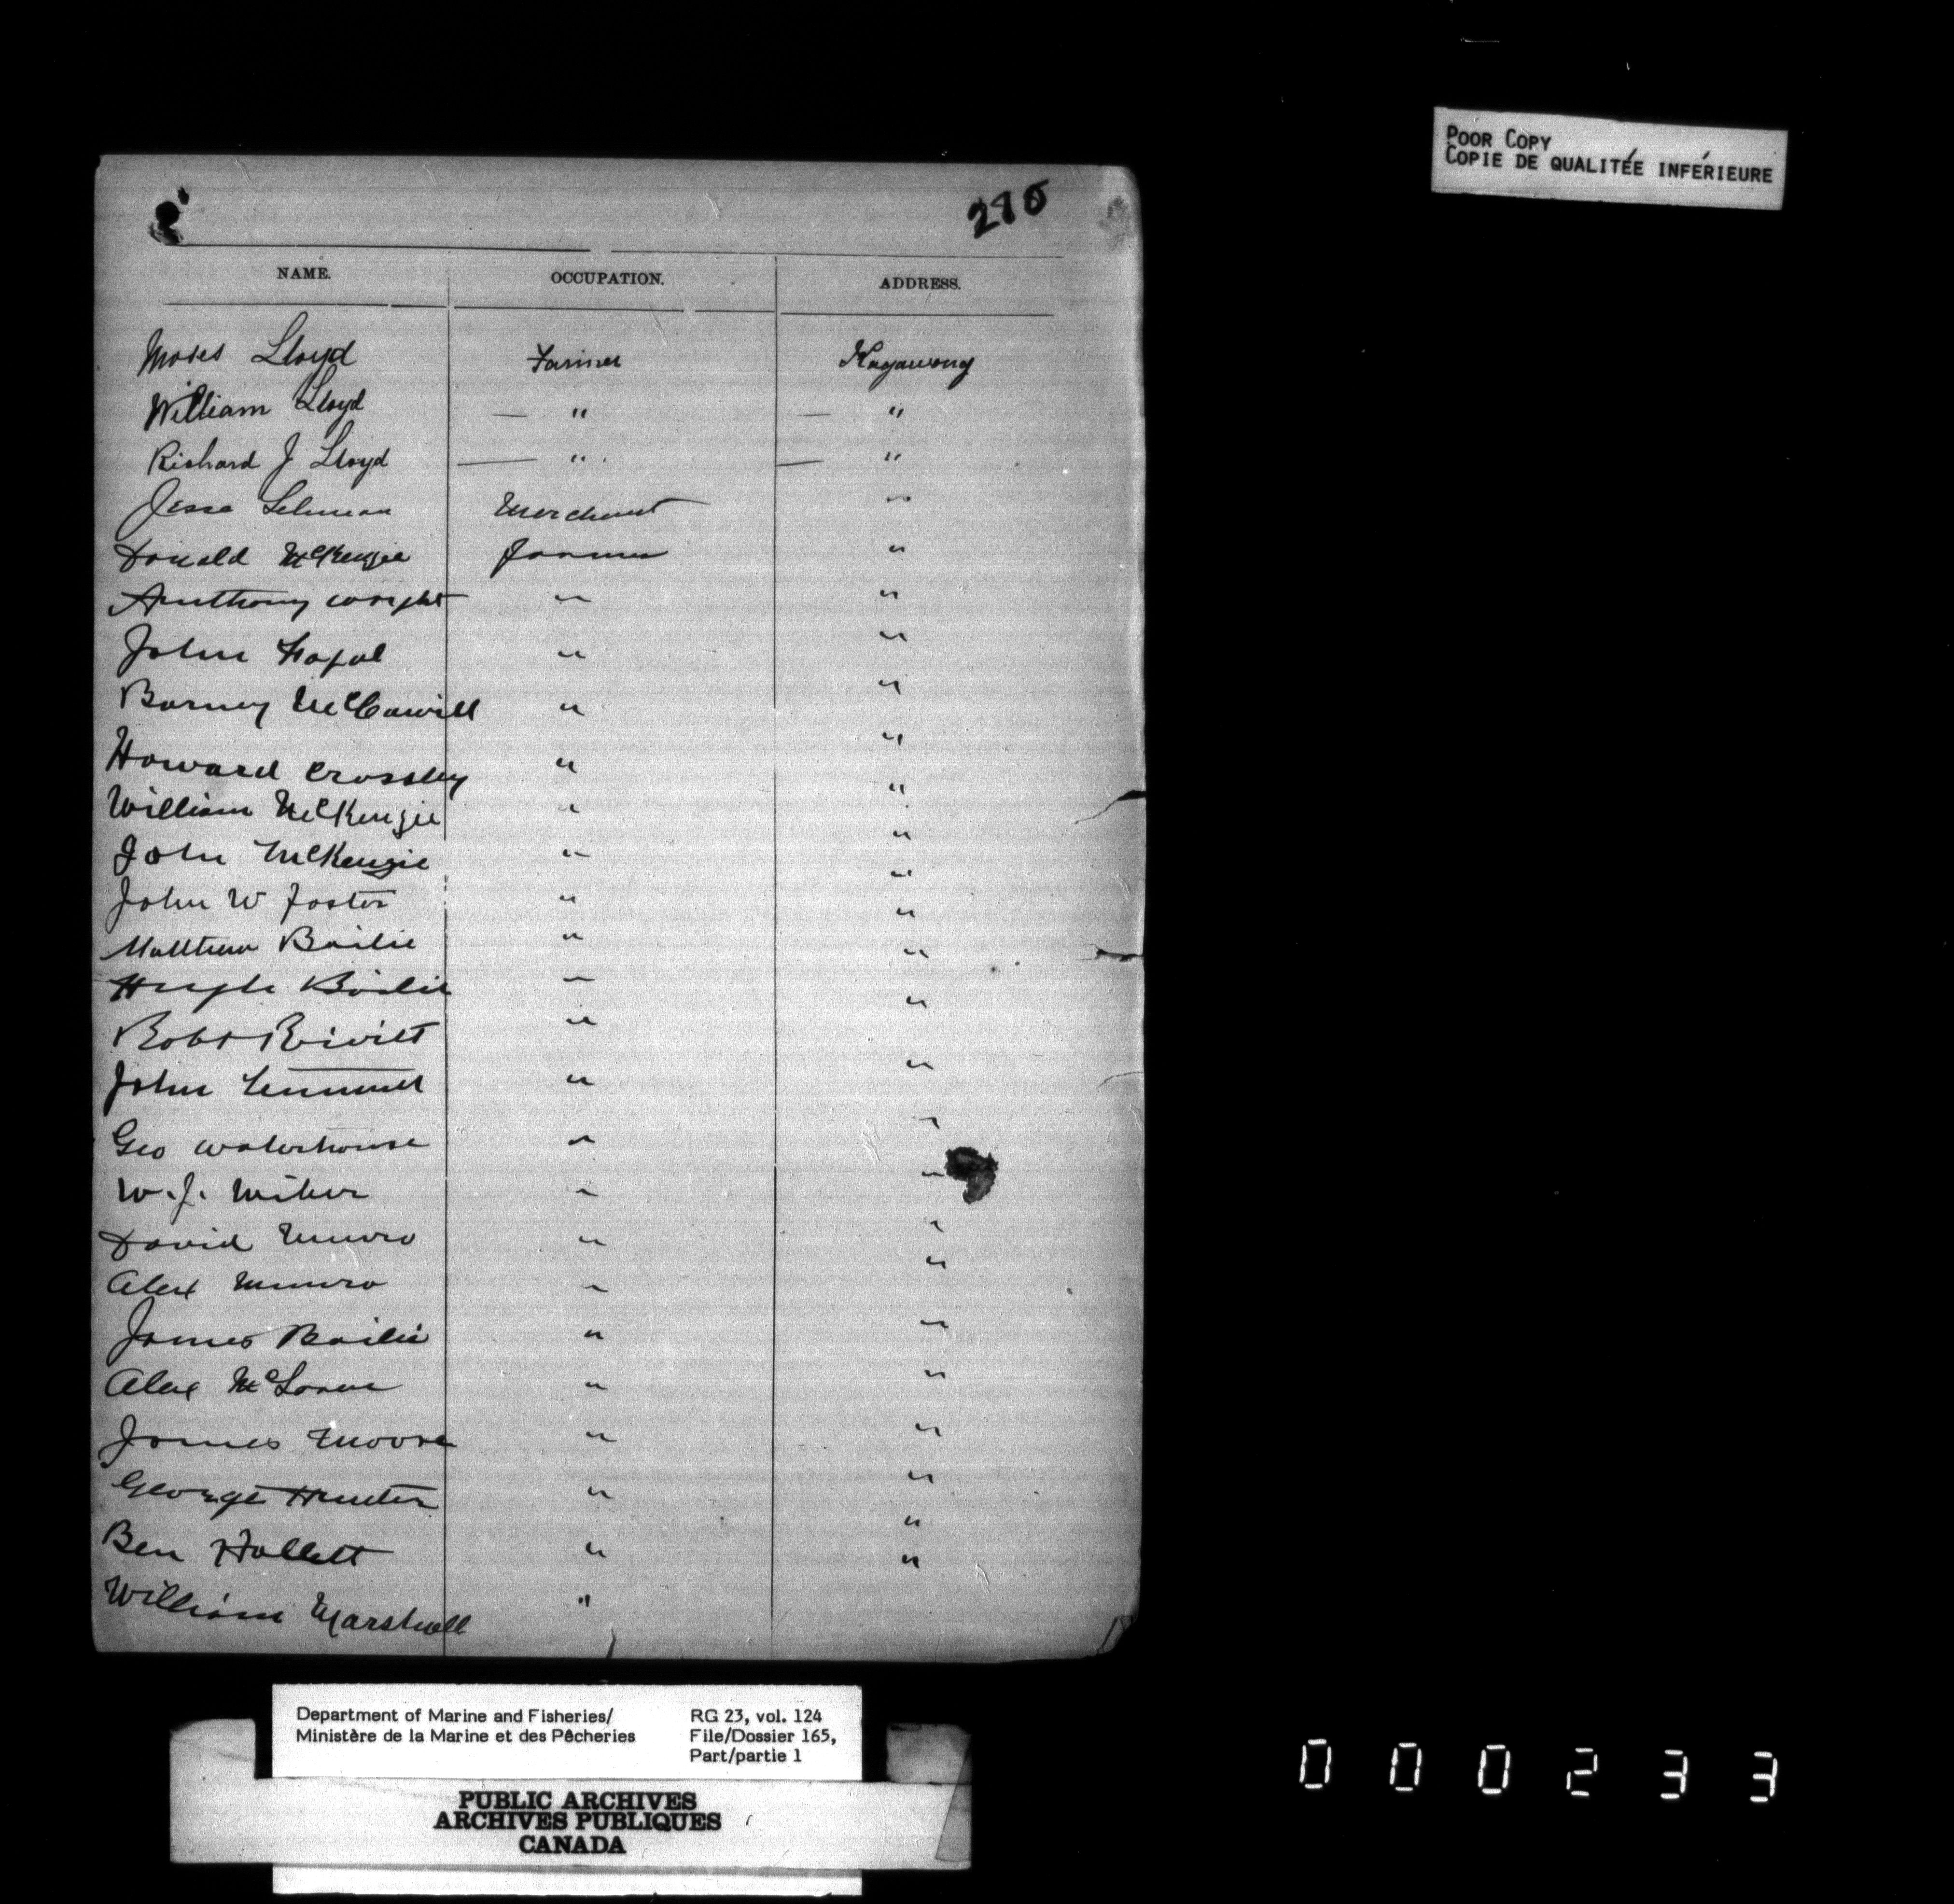 POOR COPY
COPIE DE QUALITÉE INFÉRIEURE
NAME. OCCUPATION. ADDRESS.
Moses Lloyd Farmer Kagawong
William Lloyd — " — "
Richard J Lloyd — " — "
Jesse Merchant "
Donald McKenzie Farmer "
Anthony Wright " "
John " "
Barney " "
Howard Crossley " "
William McKenzie " "
John McKenzie " "
John W Foster " "
Matthew Bailie " "
Hugh Bailie " "
Robt " "
John " "
Geo Waterhouse " "
W. J. " "
David Munro " "
Alex Munro " "
James Bailie " "
Alex " "
James Moore " "
George Hunter " "
Ben Hallett " "
William Marshall "
Department of Marine and Fisheries/ RG 23, vol. 124
Ministère de la Marine et des Pêcheries File/Dossier 165,
Part/partie 1
PUBLIC ARCHIVES
ARCHIVES PUBLIQUES
CANADA
000233